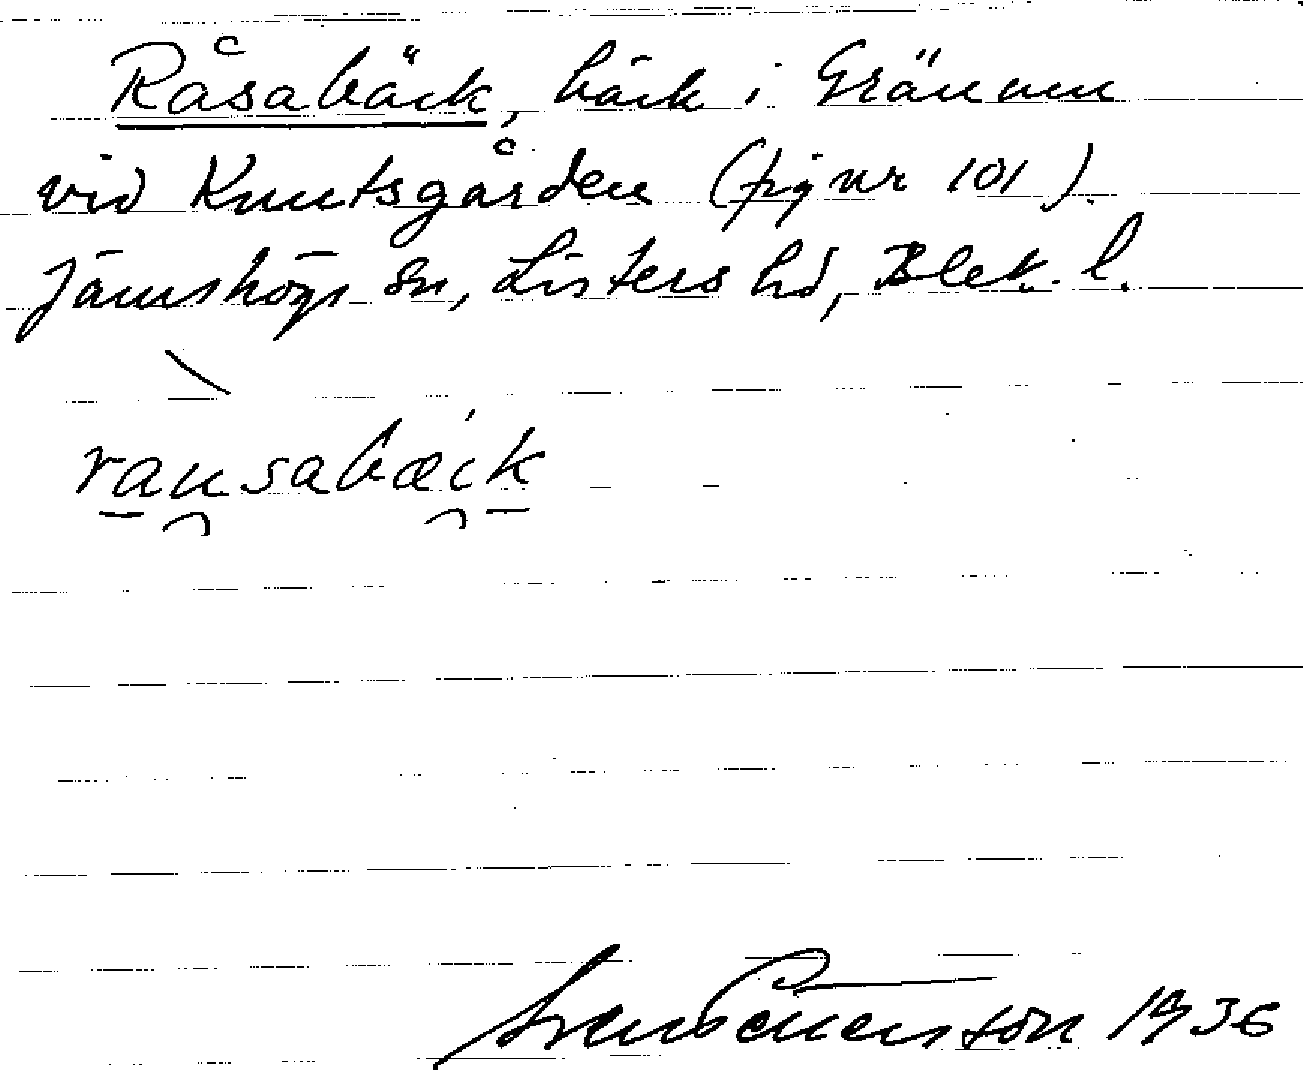 Råsabäck, bäck i Gränum
vid Knutsgården (fig nr 101).
Jämshögs sn, Listers hd, Blek. l.
rausabæick
1936